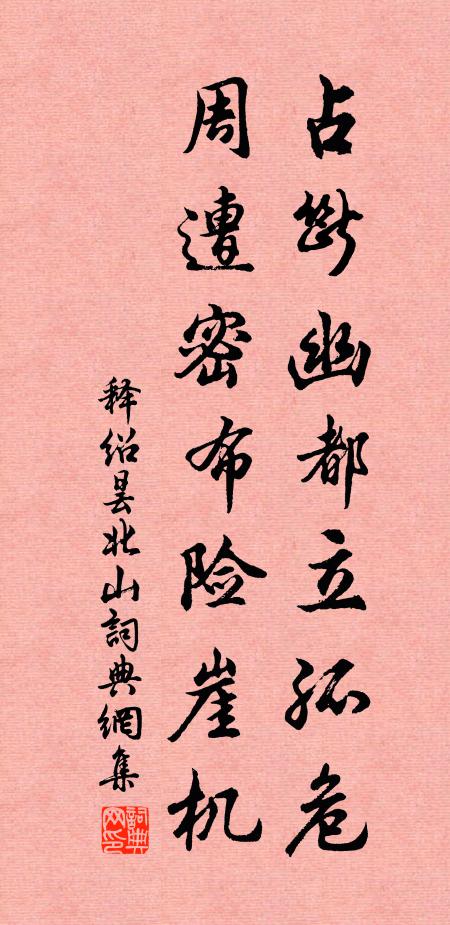 占断幽都立孤危
周遭密布险崖机
释绍昙北山詞典網集
詞典网印